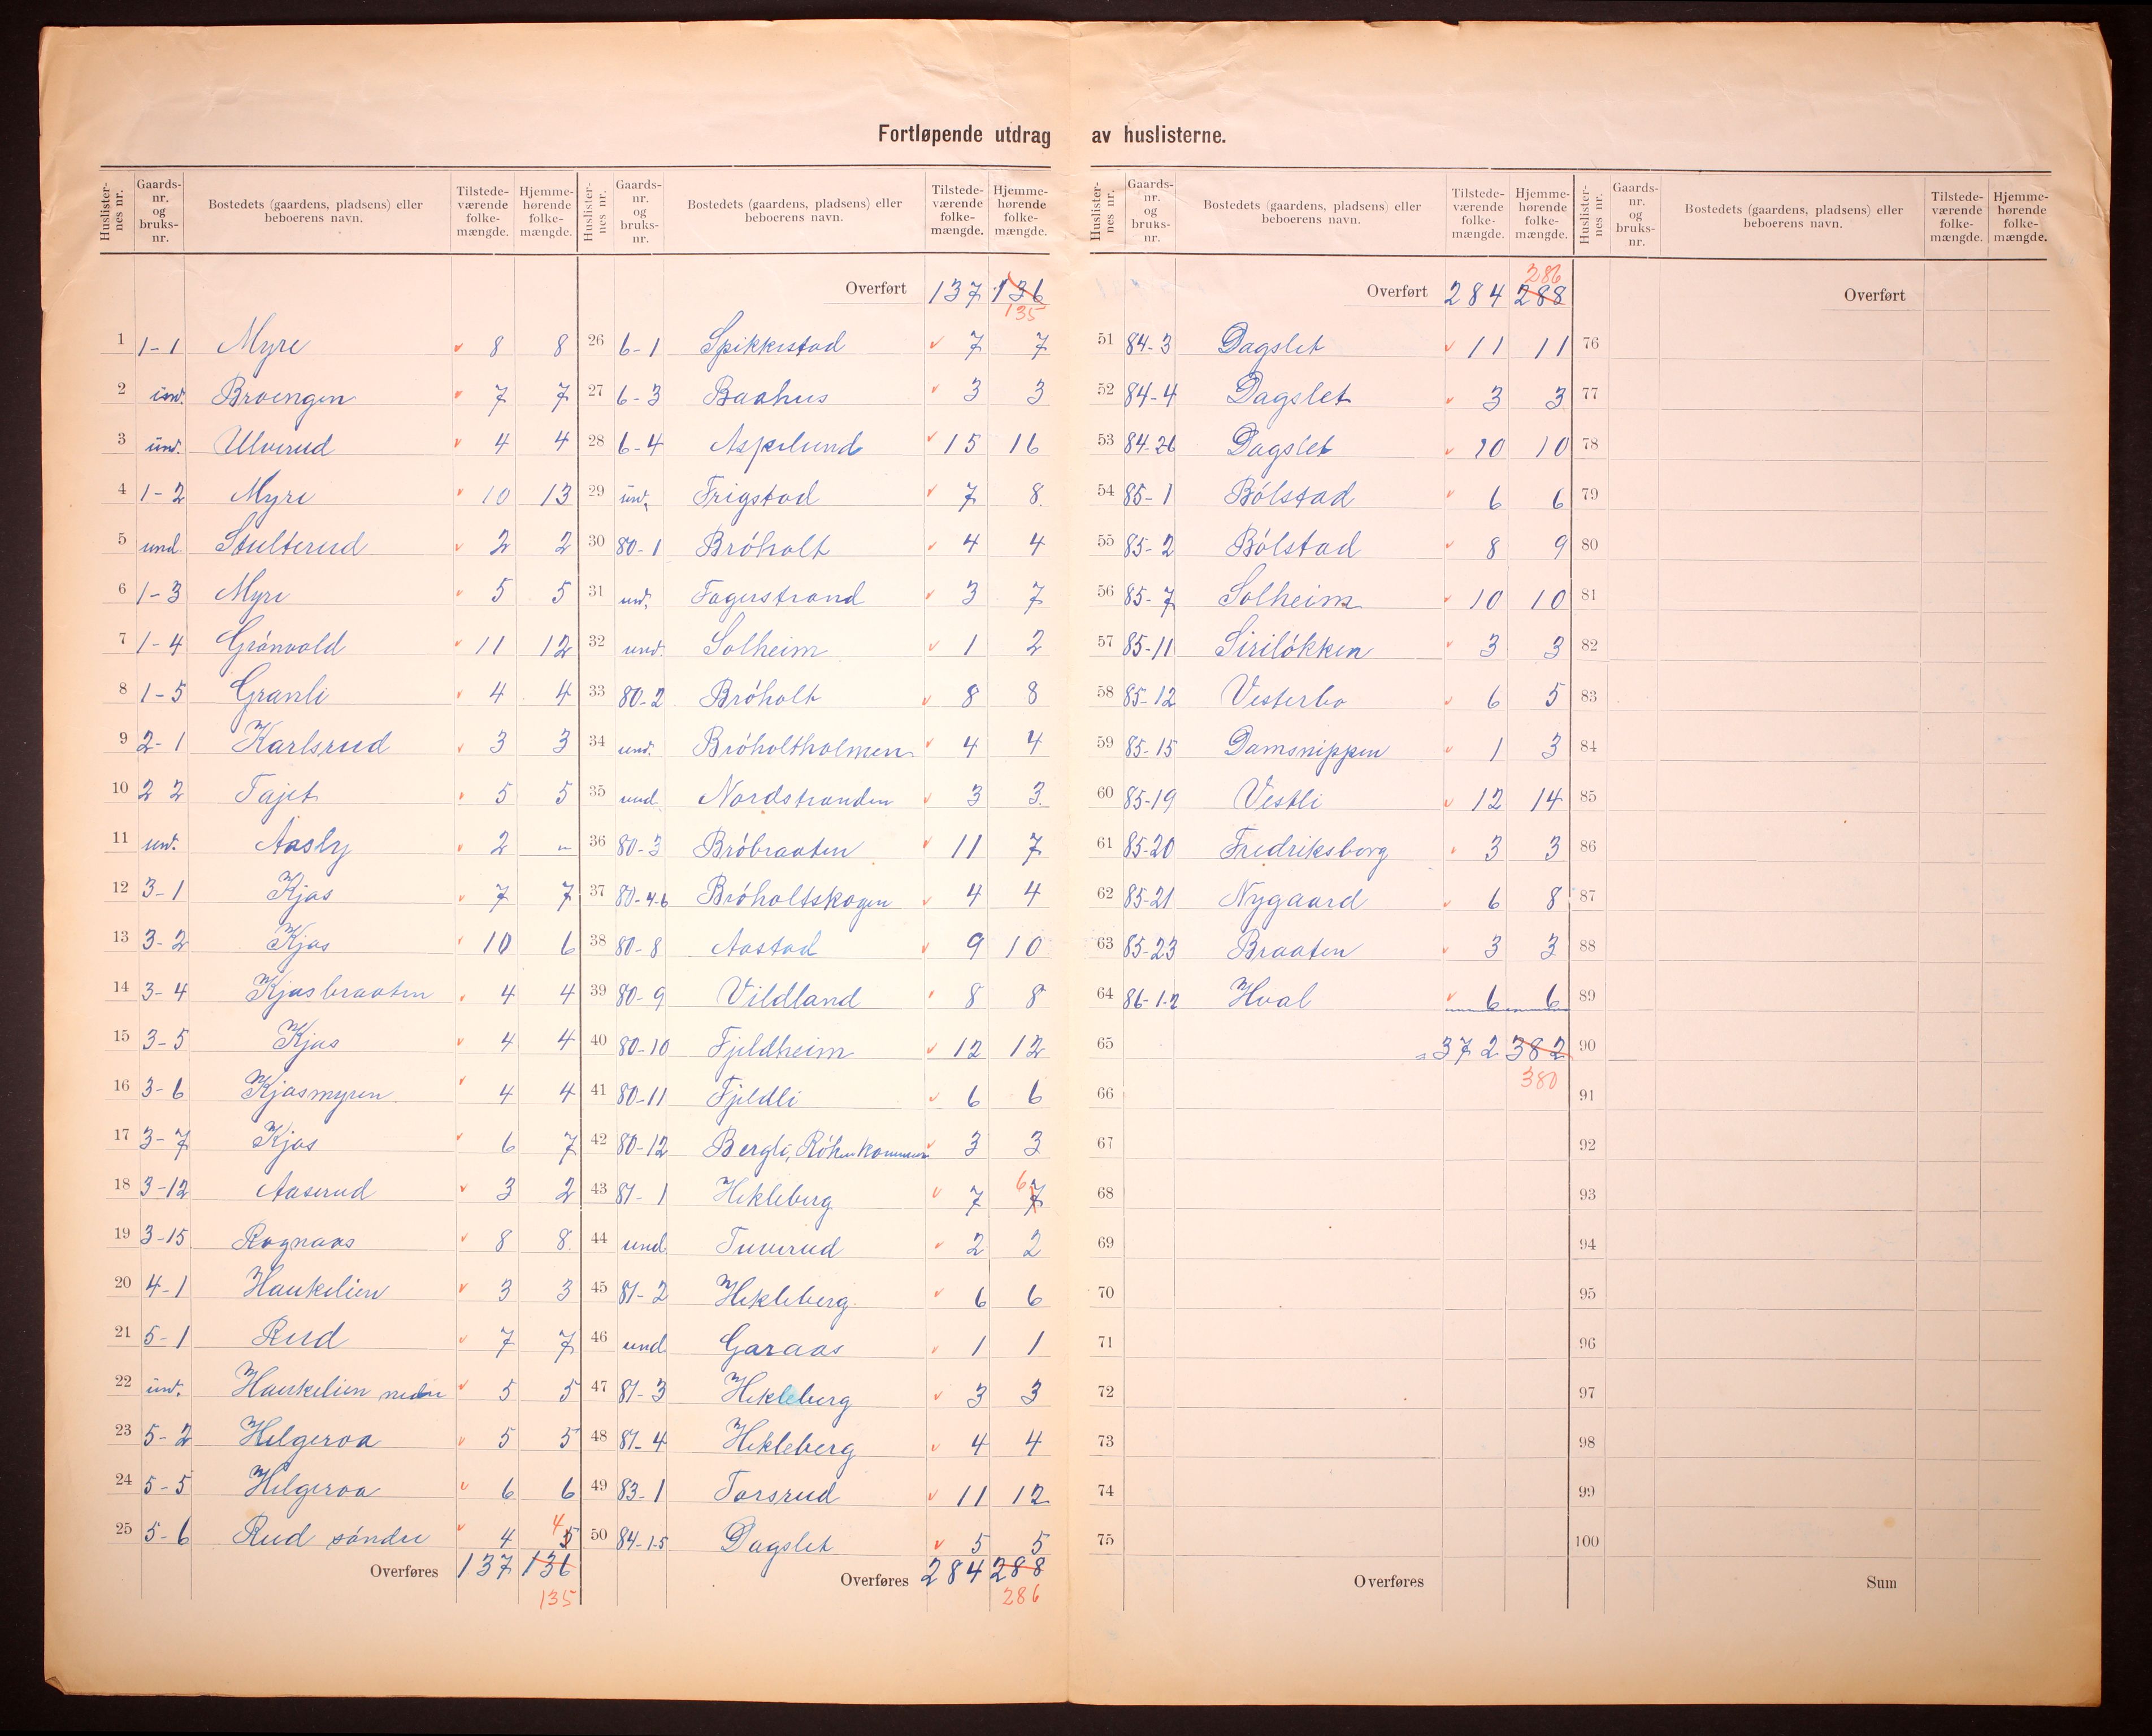 Fortløpende utdrag av huslisterne.
Huslisternes nr. | Gaards-nr. og bruks-nr. | Bostedets (gaardens, pladsens) eller beboerens navn. | Tilstede-værende folke-mængde. | Hjemme-hørende folke-mængde.
1 1-1 Myre 8 8
2 und. Broengen 7 7
3 und. Ulverud 4 4
4 1-2 Myre 10 13
5 und. Stulterud 2 2
6 1-3 Myre 5 5
7 1-4 Grónvold 11 12
8 1-5 Granli 4 4
9 2-1 Karlsrud 3 3
10 2 2 Tajet 5 5
11 und. Aasly 2 "
12 3-1 Kjos 7 7
13 3-2 Kjos 10 6
14 3-4 Kjosbraaten 4 4
15 3-5 Kjos 4 4
16 3-6 Kjosmyren 4 4
17 3-7 Kjos 6 7
18 3-12 Aaserud 3 2
19 3-15 Rognaas 8 8
20 4-1 Haukelien 3 3
21 5-1 Rud 7 7
22 und. Haukelien nedre 5 5
23 5-2 Helgeroa 5 5
24 5-5 Helgeroa 6 6
25 5-6 Rud sóndre 4 5 4
Overføres 137 136
135
Huslisternes nr. | Gaards-nr. og bruks-nr. | Bostedets (gaardens, pladsens) eller beboerens navn. | Tilstede-værende folke-mængde. | Hjemme-hørende folke-mængde.
Overført 137 136
135
26 6-1 Spikkestad 7 7
27 6-3 Baahus 3 3
28 6-4 Askelund 15 16
29 und. Frigstad 7 8
30 80-1 Bróholt 4 4
31 und. Fagerstrand 3 7
32 und. Solheim 1 2
33 80-2 Bróholt 8 8
34 und. Bróholtholmen 4 4
35 und Nordstranden 3 3
36 80-3 Bróbraaten 11 7
37 80-4-6 Bróholtskogen 4 4
38 80-8 Aastad 9 10
39 80-9 Vildland 8 8
40 80-10 Fjeldheim 12 12
41 80-11 Fjeldli 6 6
42 80-12 Bergli, Róken kommune 3 3
43 81-1 Hekleberg 7 7 6
44 und Tuverud 2 2
45 81-2 Hekleberg 6 6
46 und Garaas 1 1
47 81-3 Hekleberg 3 3
48 81-4 Hekleberg 4 4
49 83-1 Torsrud 11 12
50 84-1-5 Dagslet 5 5
Overføres 284 288
286
Huslisternes nr. | Gaards-nr. og bruks-nr. | Bostedets (gaardens, pladsens) eller beboerens navn. | Tilstede-værende folke-mængde. | Hjemme-hørende folke-mængde.
286
Overført 284 288
51 84-3 Dagslet 11 11
52 84-4 Dagslet 3 3
53 84-26 Dagslet 10 10
54 85-1 Bólstad 6 6
55 85-2 Bólstad 8 9
56 85-7 Solheim 10 10
57 85-11 Sirilókken 3 3
58 85-12 Vesterbo 6 5
59 85-15 Damsnippen 1 3
60 85-19 Vestli 12 14
61 85-20 Fredriksborg 3 3
62 85-21 Nygaard 6 8
63 85-23 Braaten 3 3
64 86-1-2 Hval 6 6
65 = 372 382
380
66
67
68
69
70
71
72
73
74
75
Overføres
Huslisternes nr. | Gaards-nr. og bruks-nr. | Bostedets (gaardens, pladsens) eller beboerens navn. | Tilstede-værende folke-mængde. | Hjemme-hørende folke-mængde.
Overført
76
77
78
79
80
81
82
83
84
85
86
87
88
89
90
91
92
93
94
95
96
97
98
99
100
Sum